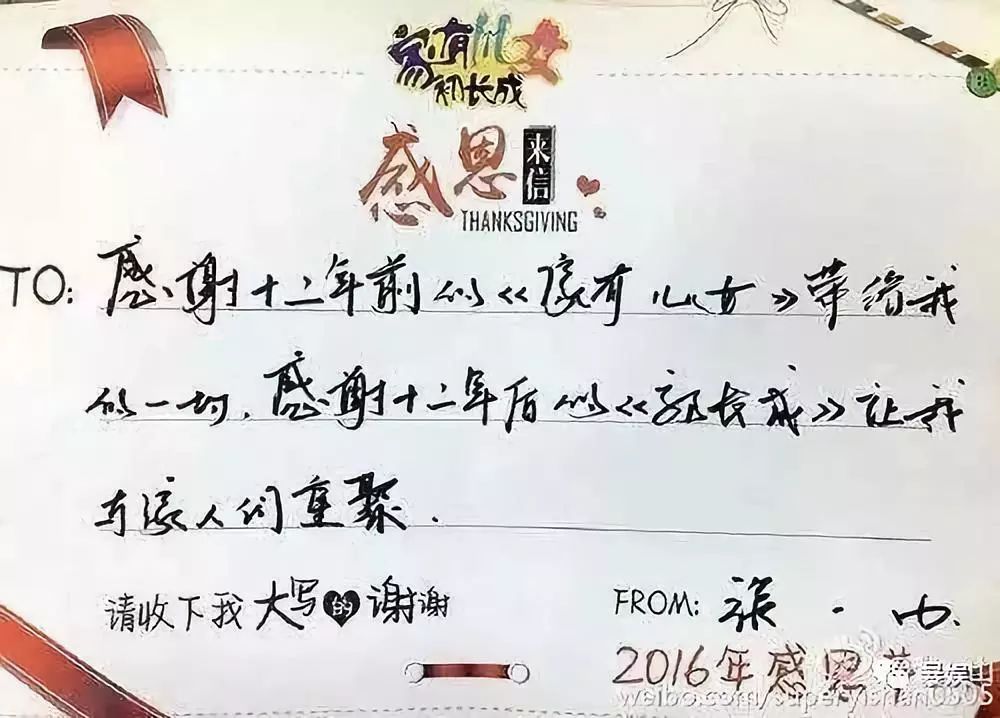 家有儿女
初长成
感恩来信
THANKSGIVING
TO: 感谢十二年前的《家有儿女》带给我
的一切，感谢十二年后的《初长成》让我
与家人们重聚.
请收下我大写的谢谢
FROM: 张一山
2016年感恩节
weibo.com/superyishan0505